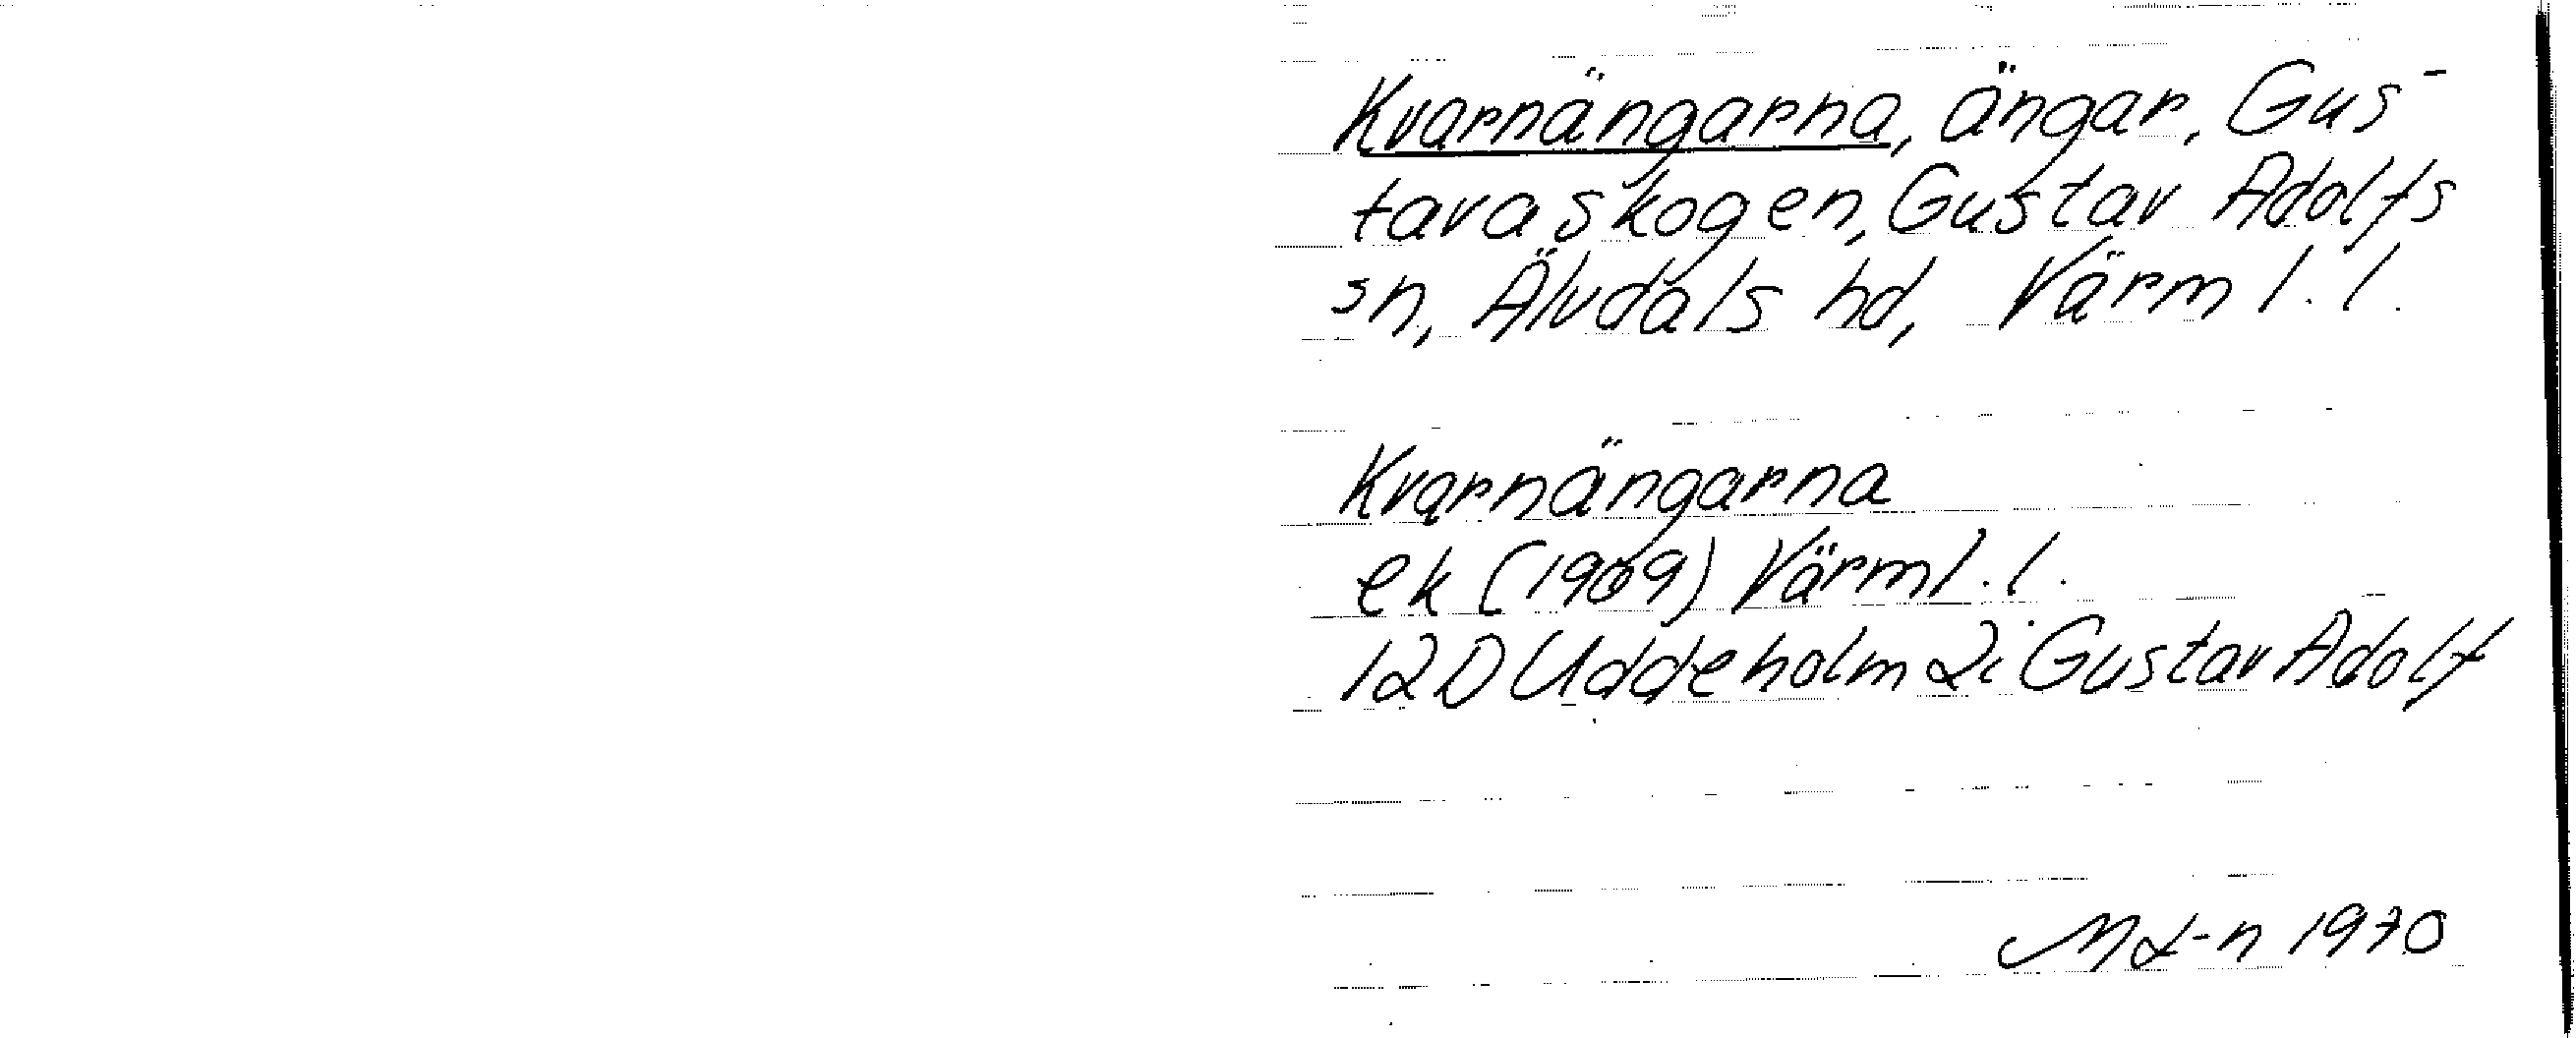 Kvarnängarna, ängar, Gus-
tavaskogen, Gustav Adolfs
sn, Älvdals hd, Värml. l.
Kvarnängarna
ek (1969) Värml. l.
12D Uddeholm 2i Gustav Adolf
ML-n 1970